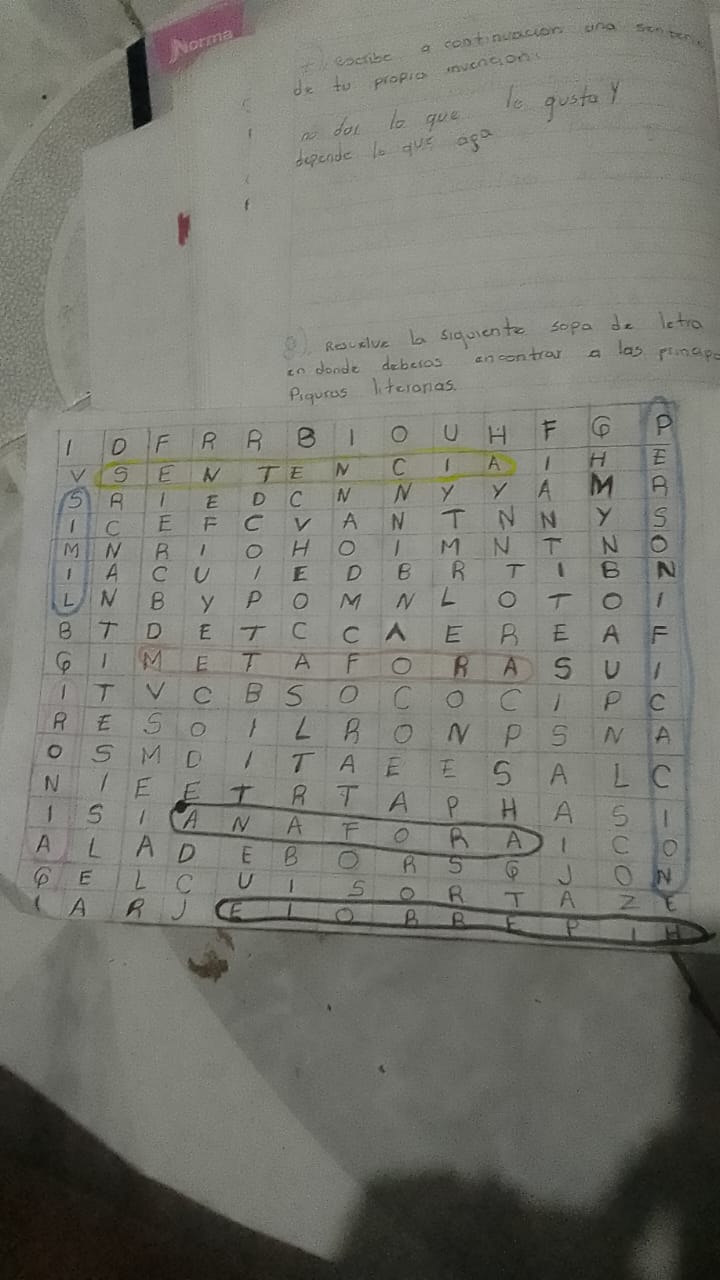 Norma
escribe a continuacion una senten
de tu propia invencion.
no doi lo que le gusta y
depende lo que aga
8). Resuelve la siguiente sopa de letra
en donde deberas encontrar a las princape
Figuras literarias.
I D F R R B I O U H F G P
V S E N T E N C I A I H E
S R I E D C N N Y Y A M R
I C E F C V A N T N N Y S
M N R I O H O I M N T N O
I A C U I E D B R T I B N
L N B Y P O M N L O T O I
B T D E T C C A E R E A F
G I M E T A F O R A S U I
I T V C B S O C O C I P C
R E S O I L R O N P S N A
O S M D I T A E E S A L C
N I E E T R T A P H A S I
I S I A N A F O R A I C O
A L A D E B O R S G J O N
G E L C U I S O R T A Z E
I A R J E L O B R E P I H